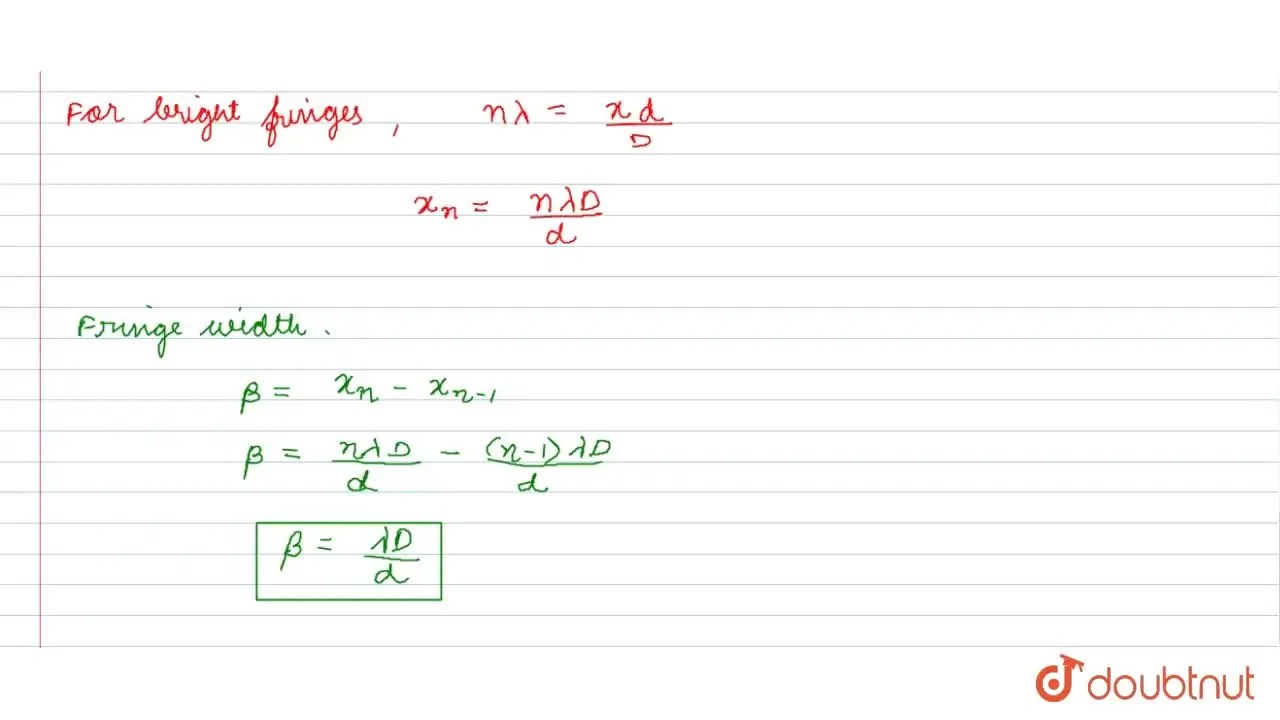 For bright fringes, nλ = xd/D
xₙ = nλD/d
Fringe width.
β = xₙ - xₙ₋₁
β = nλD/d - (n-1)λD/d
β = λD/d
doubtnut